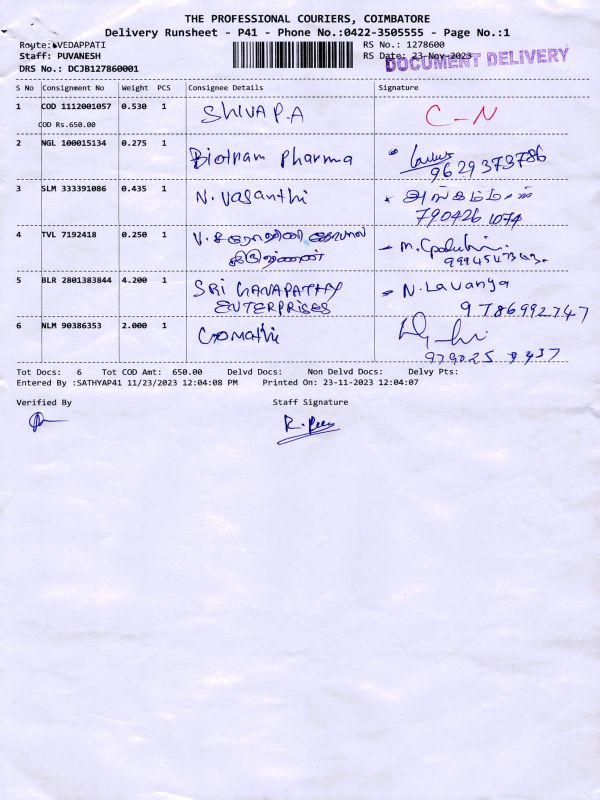 THE PROFESSIONAL COURIERS, COIMBATORE
Delivery Runsheet - P41 - Phone No.:0422-3505555 - Page No.:1
Route: VEDAPPATI RS No.: 1278600
Staff: PUVANESH RS Date: 23-Nov-2023
DOCUMENT DELIVERY
DRS No.: DCJB127860001
S No Consignment No Weight PCS Consignee Details Signature
1 COD 1112001057 0.530 1 SHIVA P.A C-N
COD Rs.650.00
2 NGL 100015134 0.275 1 Biotram Pharma
9629373786
3 SLM 333391086 0.435 1 N. Vasanthi
790426 1074
4 TVL 7192418 0.250 1 V.
5 BLR 2801383844 4.200 1 SRI GANAPATHY N. Lavanya
ENTERPRISES 9786992747
6 NLM 90386353 2.000 1 Gomathi
Tot Docs: 6 Tot COD Amt: 650.00 Delvd Docs: Non Delvd Docs: Delvy Pts:
Entered By :SATHYAP41 11/23/2023 12:04:08 PM Printed On: 23-11-2023 12:04:07
Verified By Staff Signature